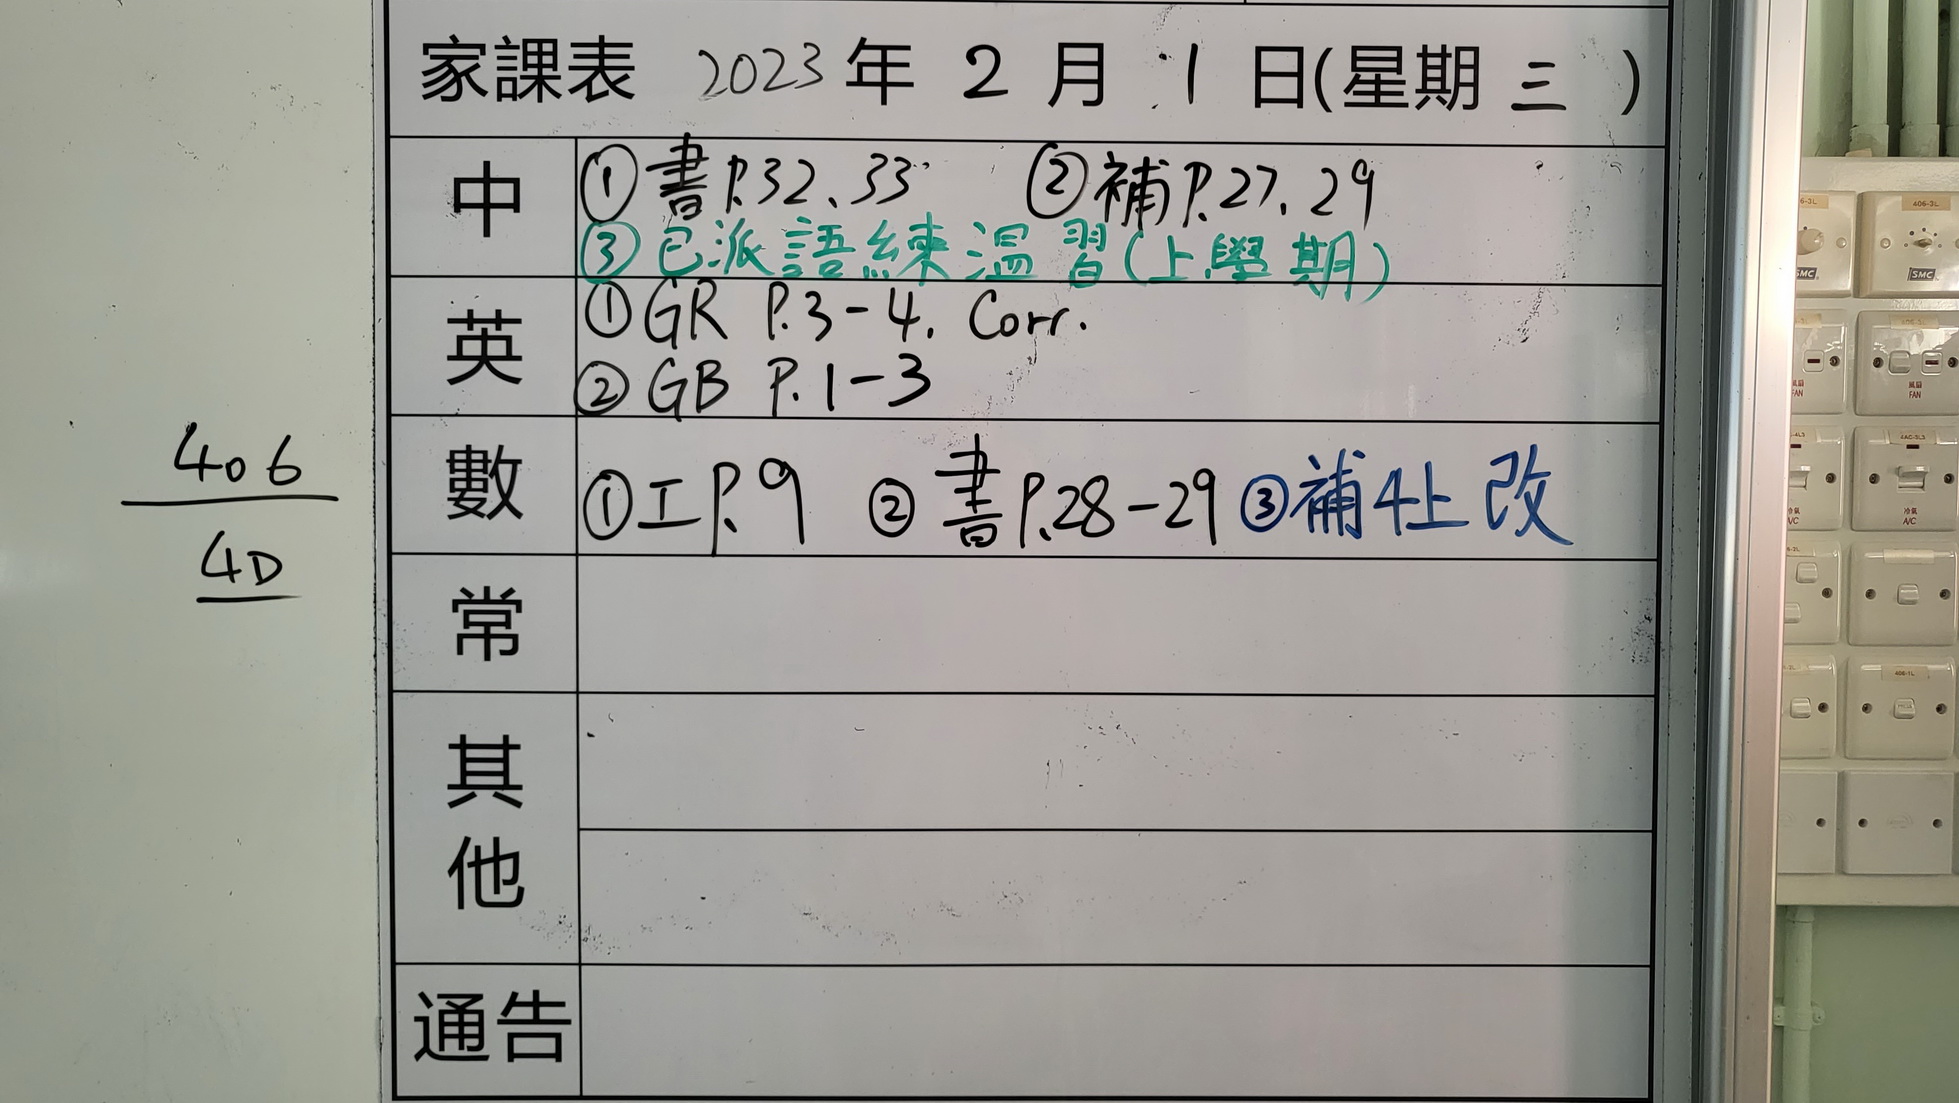 家課表 2023 年 2 月 1 日(星期 三 )
中
①書P.32、33 ②補P.27、29
③已派語練溫習(上學期)
英
①GR P.3-4. Corr.
②GB P.1-3
數
①工P.9 ②書P.28-29 ③補4上改
常
其他
通告
406
4D
406-3L
SMC
SMC
風扇
FAN
風扇
FAN
4AC-3L3
冷氣
A/C
冷氣
A/C
406-1L